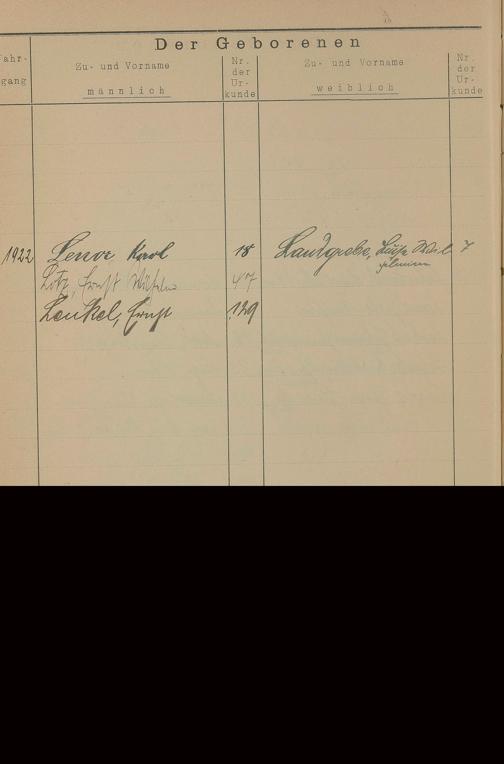 Der Geborenen
Jahr-
gang
Zu- und Vorname
männlich
Nr.
der
Ur-
kunde
Zu- und Vorname
weiblich
Nr.
der
Ur-
kunde
1922 Lenoe Karl 18 Landgrebe, Luise Wil 7
helmine
Lotz, Ernst Wilhelm 47
Lenkel, Ernst 129